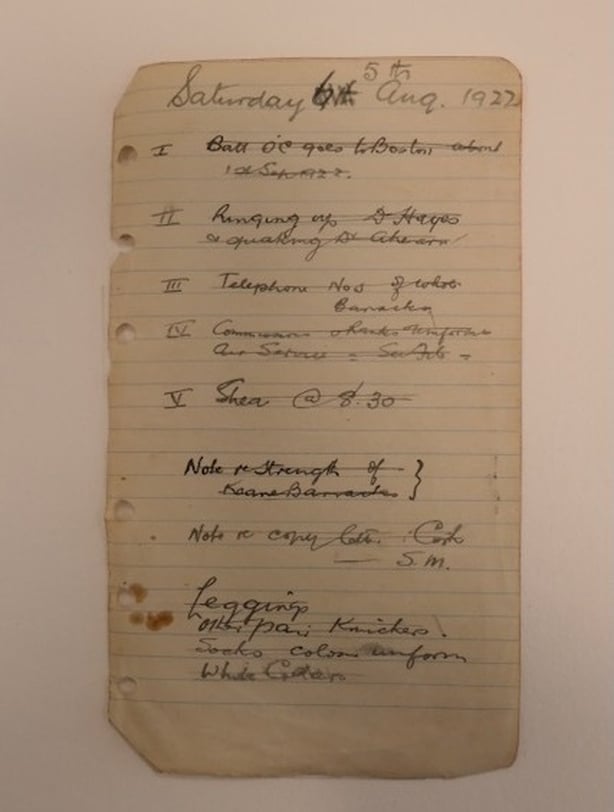 Saturday 5th Aug. 1922
I Batt O/C goes to Boston about
1st Sep 1922.
II Ringing up Dr Hayes
& Dr Ahearn
III Telephone Nos of whole
Barracks
IV ranks uniforms
Air Service =
V Shea @ 8.30
Note re strength of
Keane Barracks
Note re copy letter Cork
— S.M.
Leggings
Other pair Knickers.
Socks colour uniform
White Collars